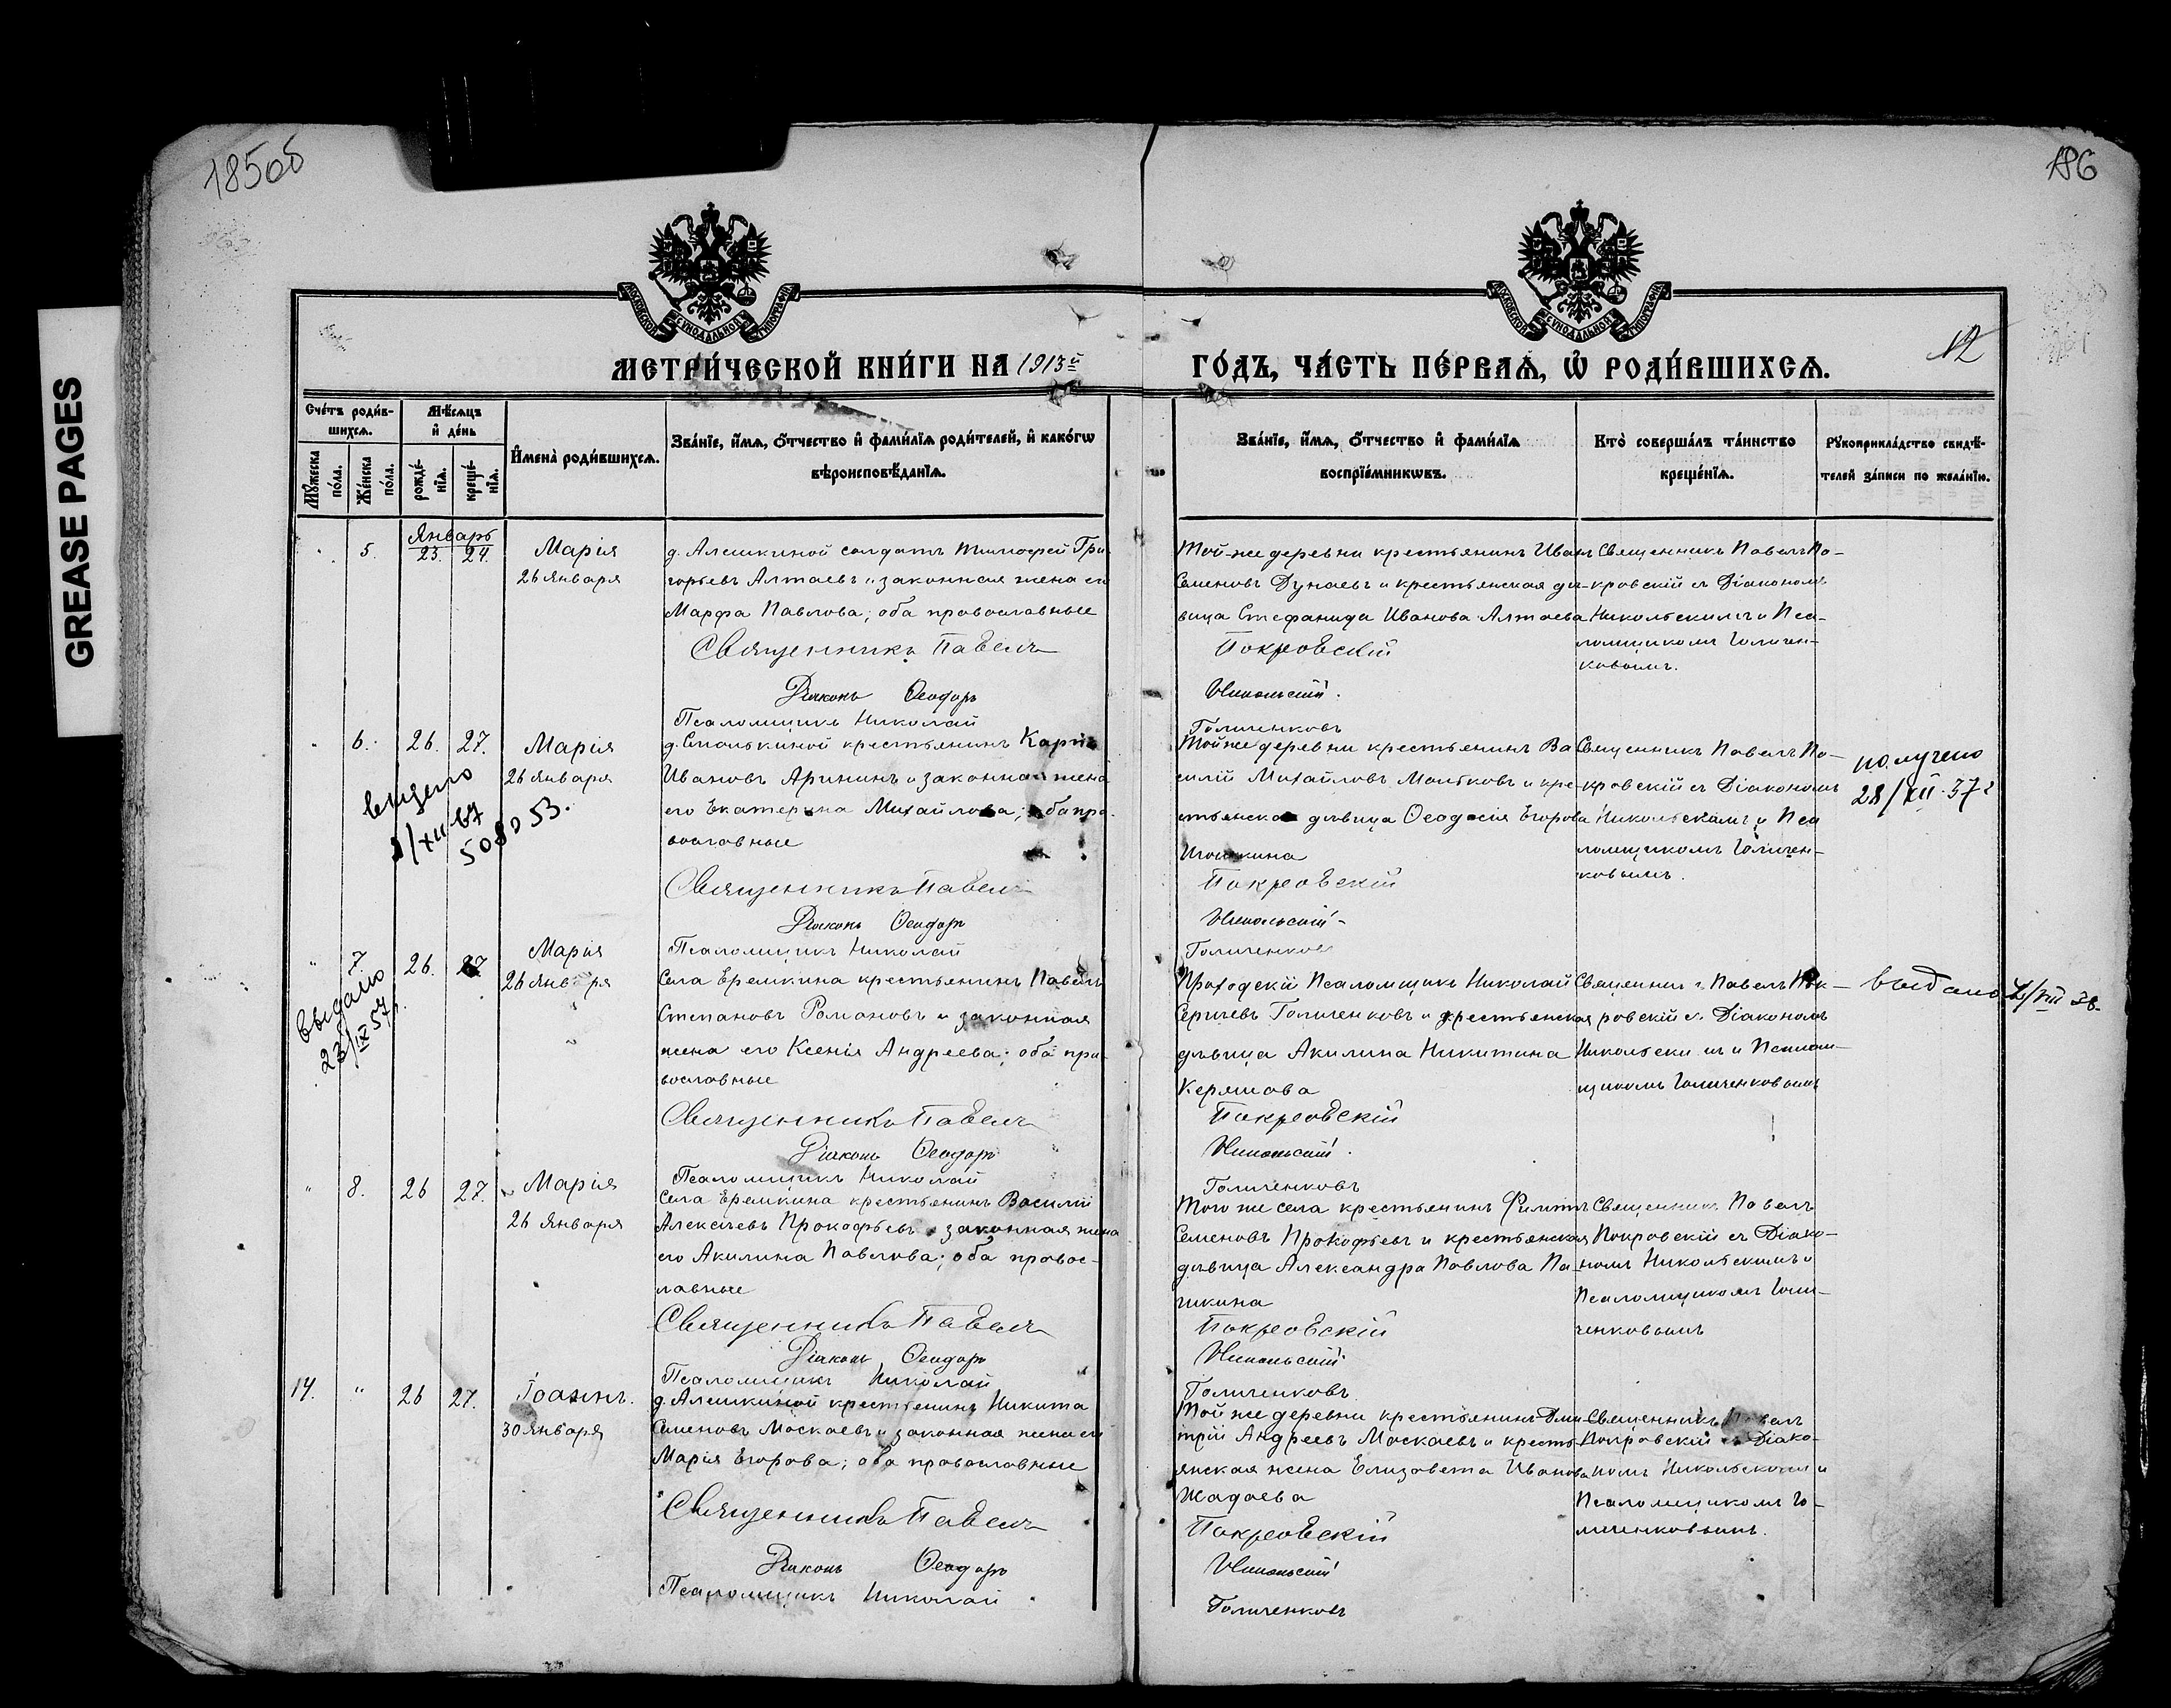 185об
186
GREASE PAGES
МОСКОВСКОЙ СѴНОДАЛЬНОЙ ТИПОГРАФІИ
МОСКОВСКОЙ СѴНОДАЛЬНОЙ ТИПОГРАФІИ
12
МЕТРИ́ЧЕСКОЙ КНИ́ГИ НА 1913й
ГО́ДЪ, ЧА́СТЬ ПЕ́РВАѦ, Ѡ҆ РОДИ́ВШИХСѦ.
Сче́тъ роди́в-
шихсѧ.
Мѣ́сѧцъ
и҆ де́нь
Мꙋ́жеска
по́ла.
Же́нска
по́ла.
рожде́-
нїѧ.
креще́-
нїѧ.
И҆мена̀ роди́вшихсѧ.
Зва́нїе, и҆́мѧ, ѻ҆́тчество и҆ фами́лїѧ роди́телей, и҆ како́гѡ
вѣроисповѣ́данїѧ.
Зва́нїе, и҆́мѧ, ѻ҆́тчество и҆ фами́лїѧ
воспрїе́мникѡвъ.
Кто̀ соверша́лъ та́инство
креще́нїѧ.
Рꙋкоприкла́дство свидѣ́-
телей за́писи по жела́нїю.
Январь
5. 23. 24. Марія
26 Января
д. Алешкиной солдатъ Тимофей Гри-
горьевъ Алтаевъ и законная жена его
Марфа Павлова; оба православные
Священникъ Павелъ
Діаконъ Ѳеодоръ
Псаломщикъ Николай
Той-же деревни крестьянинъ Иванъ
Семеновъ Дунаевъ и крестьянская дѣ-
вица Стефанида Иванова Алтаева
Покровскій
Никольскій.
Голиченковъ
Священникъ Павелъ По-
кровскій съ Діакономъ
Никольскимъ и Пса-
ломщикомъ Голичен-
ковымъ.
" 6. 26. 27. Марія
26 Января
508053.
д. Смолькиной крестьянинъ Карпъ
Ивановъ Арининъ и законная жена
его Екатерина Михайлова; оба пра-
вославные
Священникъ Павелъ
Діаконъ Ѳеодоръ
Псаломщикъ Николай
Той же деревни крестьянинъ Ва
силій Михайловъ и кре-
стьянская дѣвица Ѳеодосія Егорова
Покровскій
Никольскій
Голиченковъ
Священникъ Павелъ По-
кровскій съ Діакономъ
Никольскимъ и Пса
ломщикомъ Голичен-
ковымъ.
получено
28/XII-37г
" 7. 26. 27. Марія
26 Января
Выдано
23/IX 57г.
Села Еремкина крестьянинъ Павелъ
Степановъ Романовъ и законная
жена его Ксенія Андреева; оба пра-
вославные
Священникъ Павелъ
Діаконъ Ѳеодоръ
Псаломщикъ Николай
Приходскій Псаломщикъ Николай
Сергѣевъ Голиченковъ и крестьянская
дѣвица Акилина Никитина
Керяшова
Покровскій
Никольскій.
Голиченковъ
Священникъ Павелъ Пок-
ровскій съ Діакономъ
Никольскимъ и Псалом-
щикомъ Голиченковымъ
выдано
" 8. 26 27. Марія
26 Января
Села Еремкина крестьянинъ Василій
Алексѣевъ Прокофьевъ и законная жена
его Акилина Павлова; оба правос-
лавные
Священникъ Павелъ
Діаконъ Ѳеодоръ
Псаломщикъ Николай
Того же села крестьянинъ Филиппъ
Семеновъ Прокофьевъ и крестьянская
дѣвица Александра Павлова Па-
шкина
Покровскій
Никольскій
Голиченковъ
Священникъ Павелъ
Покровскій съ Діако-
номъ Никольскимъ и
Псаломщикомъ Голи-
ченковымъ
14. " 26 27. Іоаннъ.
30 Января
д. Алешкиной крестьянинъ Никита
Семеновъ Москаевъ и законная жена его
Марія Егорова; оба православные
Священникъ Павелъ
Діаконъ Ѳеодоръ
Псаломщикъ Николай
Той же деревни крестьянинъ Дми-
трій Андреевъ Москаевъ и кресть-
янская жена Елизавета Иванова
Жадаева
Покровскій
Никольскій
Голиченковъ
Священникъ Павелъ
Покровскій съ Діако-
номъ Никольскимъ и
Псаломщикомъ Го-
личенковымъ.